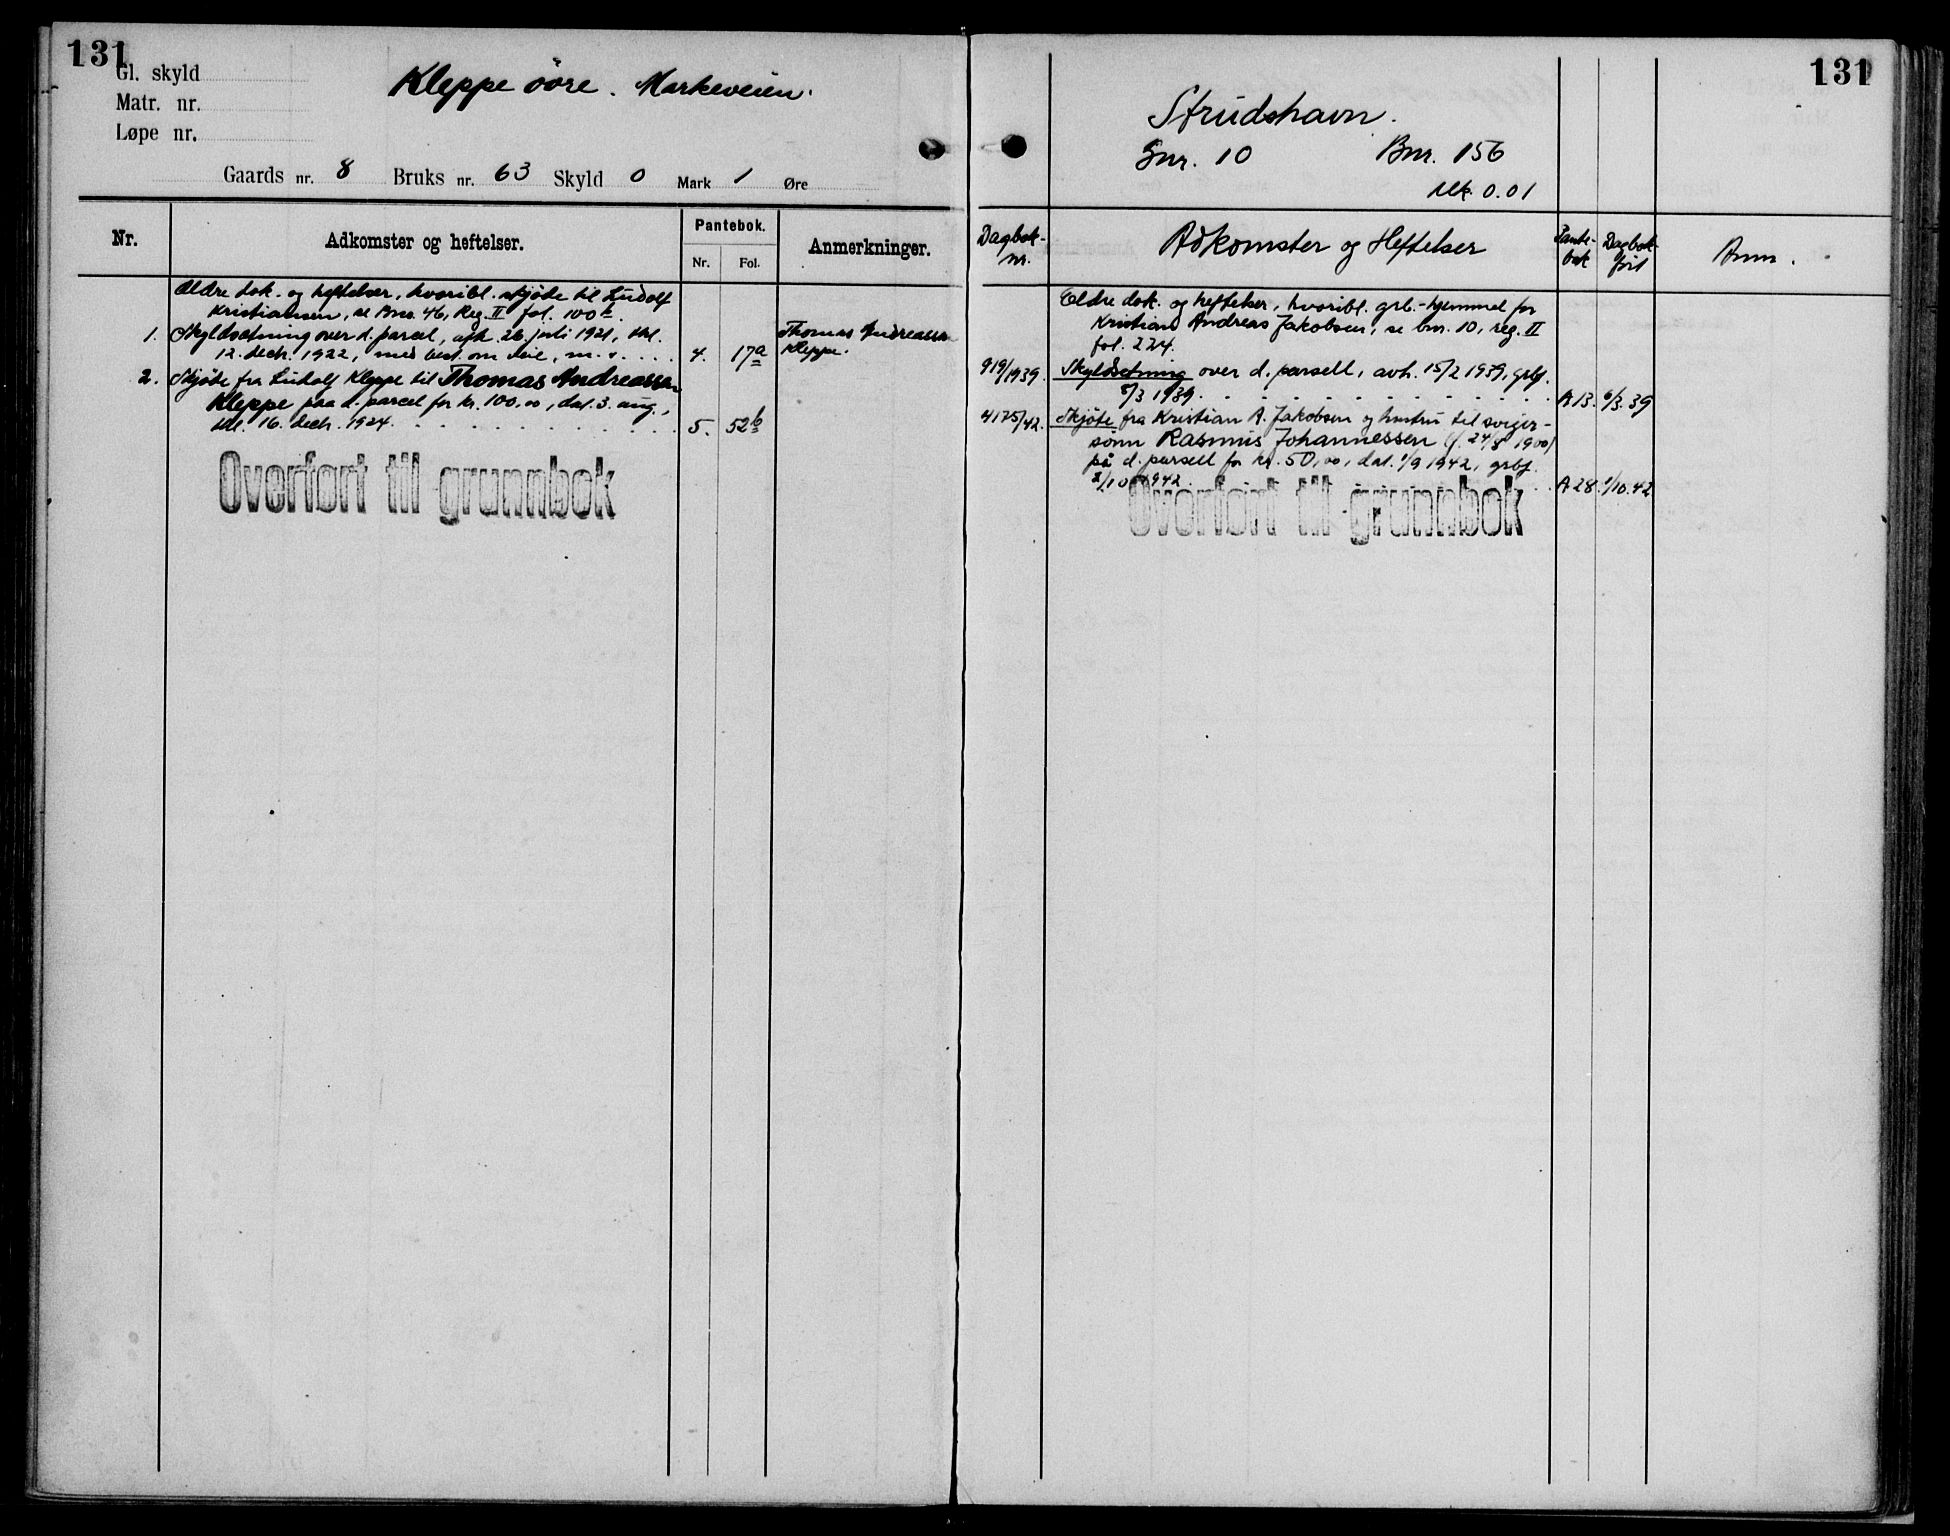 131
Gl. skyld
Matr. nr.
Løpe nr.
Kleppe öôre. Markeveien.
Gaards nr. 8 Bruks nr. 63 Skyld 0 Mark 1 Øre
Nr. Adkomster og heftelser. Pantebok. Anmerkninger.
Nr. Fol.
Ældre dok. og heftelser, hvoribl. skjøde til Ludolf
Kristiansen, se Bno. 46, Reg. II fol. 100b.
1. Skyldsetning over d. parcel, afh. 26. juli 1921, thl.
12. decbr. 1922, med best. om veie, m. v. . . . 4. 17a Thomas Andreassen Kleppe.
2. Skjøte fra Ludolf Kleppe til Thomas Andreassen
Kleppe paa d. parcel for kr. 100,00, dat. 3. aug.,
thl. 16. decbr. 1924. . . . . . . . . . . . 5. 52b
Overført til grunnbok
131
Strudshavn.
Gnr. 10 Bnr. 156
Mk. 0.01
Dagbok-nr. Adkomster og Heftelser Pante-bok Dagbok-ført Anm.
Eldre dok. og heftelser, hvoribl. grb.-hjemmel for
Kristian Andreas Jakobsen, se bnr. 10, reg. II
fol. 224.
919/1939. Skyldsetning over d. parsell, avh. 15/2 1939, grbf.
8/3 1939. . . . . . . . . . . A 13. 6/3.39
4175/42. Skjøte fra Kristian A. Jakobsen og hustru til sviger-
sønn Rasmus Johannessen (f. 24/8 1900)
på d. parsell for kr. 50,00, dat. 1/9 1942, grbf.
2/10 1942. . . A 28. 1/10.42
Overført til grunnbok